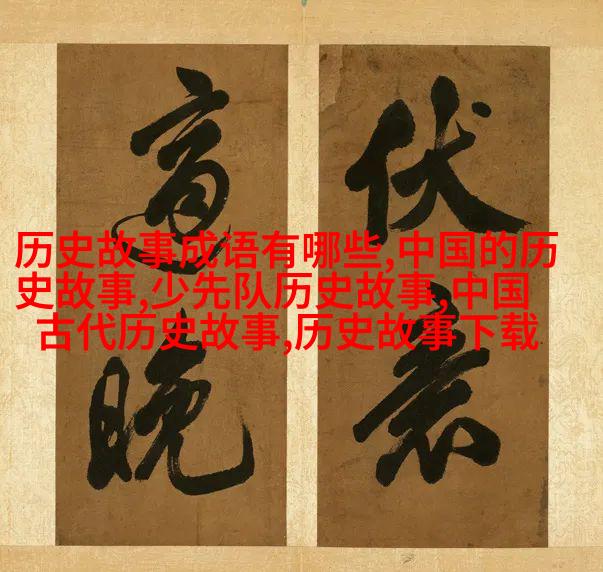 历史故事成语有哪些,中国的历
史故事,少先队历史故事,中国
古代历史故事,历史故事下载
伏
晚